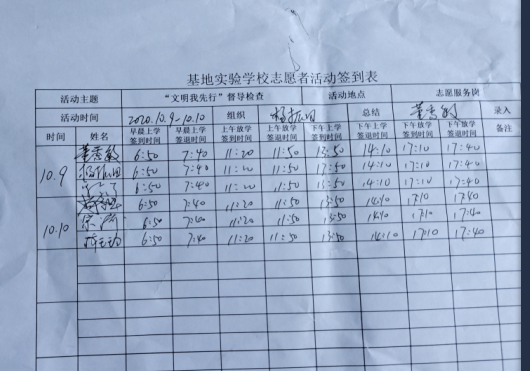 基地实验学校志愿者活动签到表
活动主题 “文明我先行”督导检查 活动地点 志愿服务岗
活动时间 2020.10.9-10.10 组织 杨振国 总结 董秀敏 录入
时间 姓名 早晨上学签到时间 早晨上学签退时间 上午放学签到时间 上午放学签退时间 下午上学签到时间 下午上学签退时间 下午放学签到时间 下午放学签退时间 备注
10.9 董秀敏 6:50 7:40 11:20 11:50 13:50 14:10 17:10 17:40
杨振国 6:50 7:40 11:20 11:50 13:50 14:10 17:10 17:40
6:50 7:40 11:20 11:50 13:50 14:10 17:10 17:40
10.10 6:50 7:40 11:20 11:50 13:50 14:10 17:10 17:40
6:50 7:40 11:20 11:50 13:50 14:10 17:10 17:40
6:50 7:40 11:20 11:50 13:50 14:10 17:10 17:40